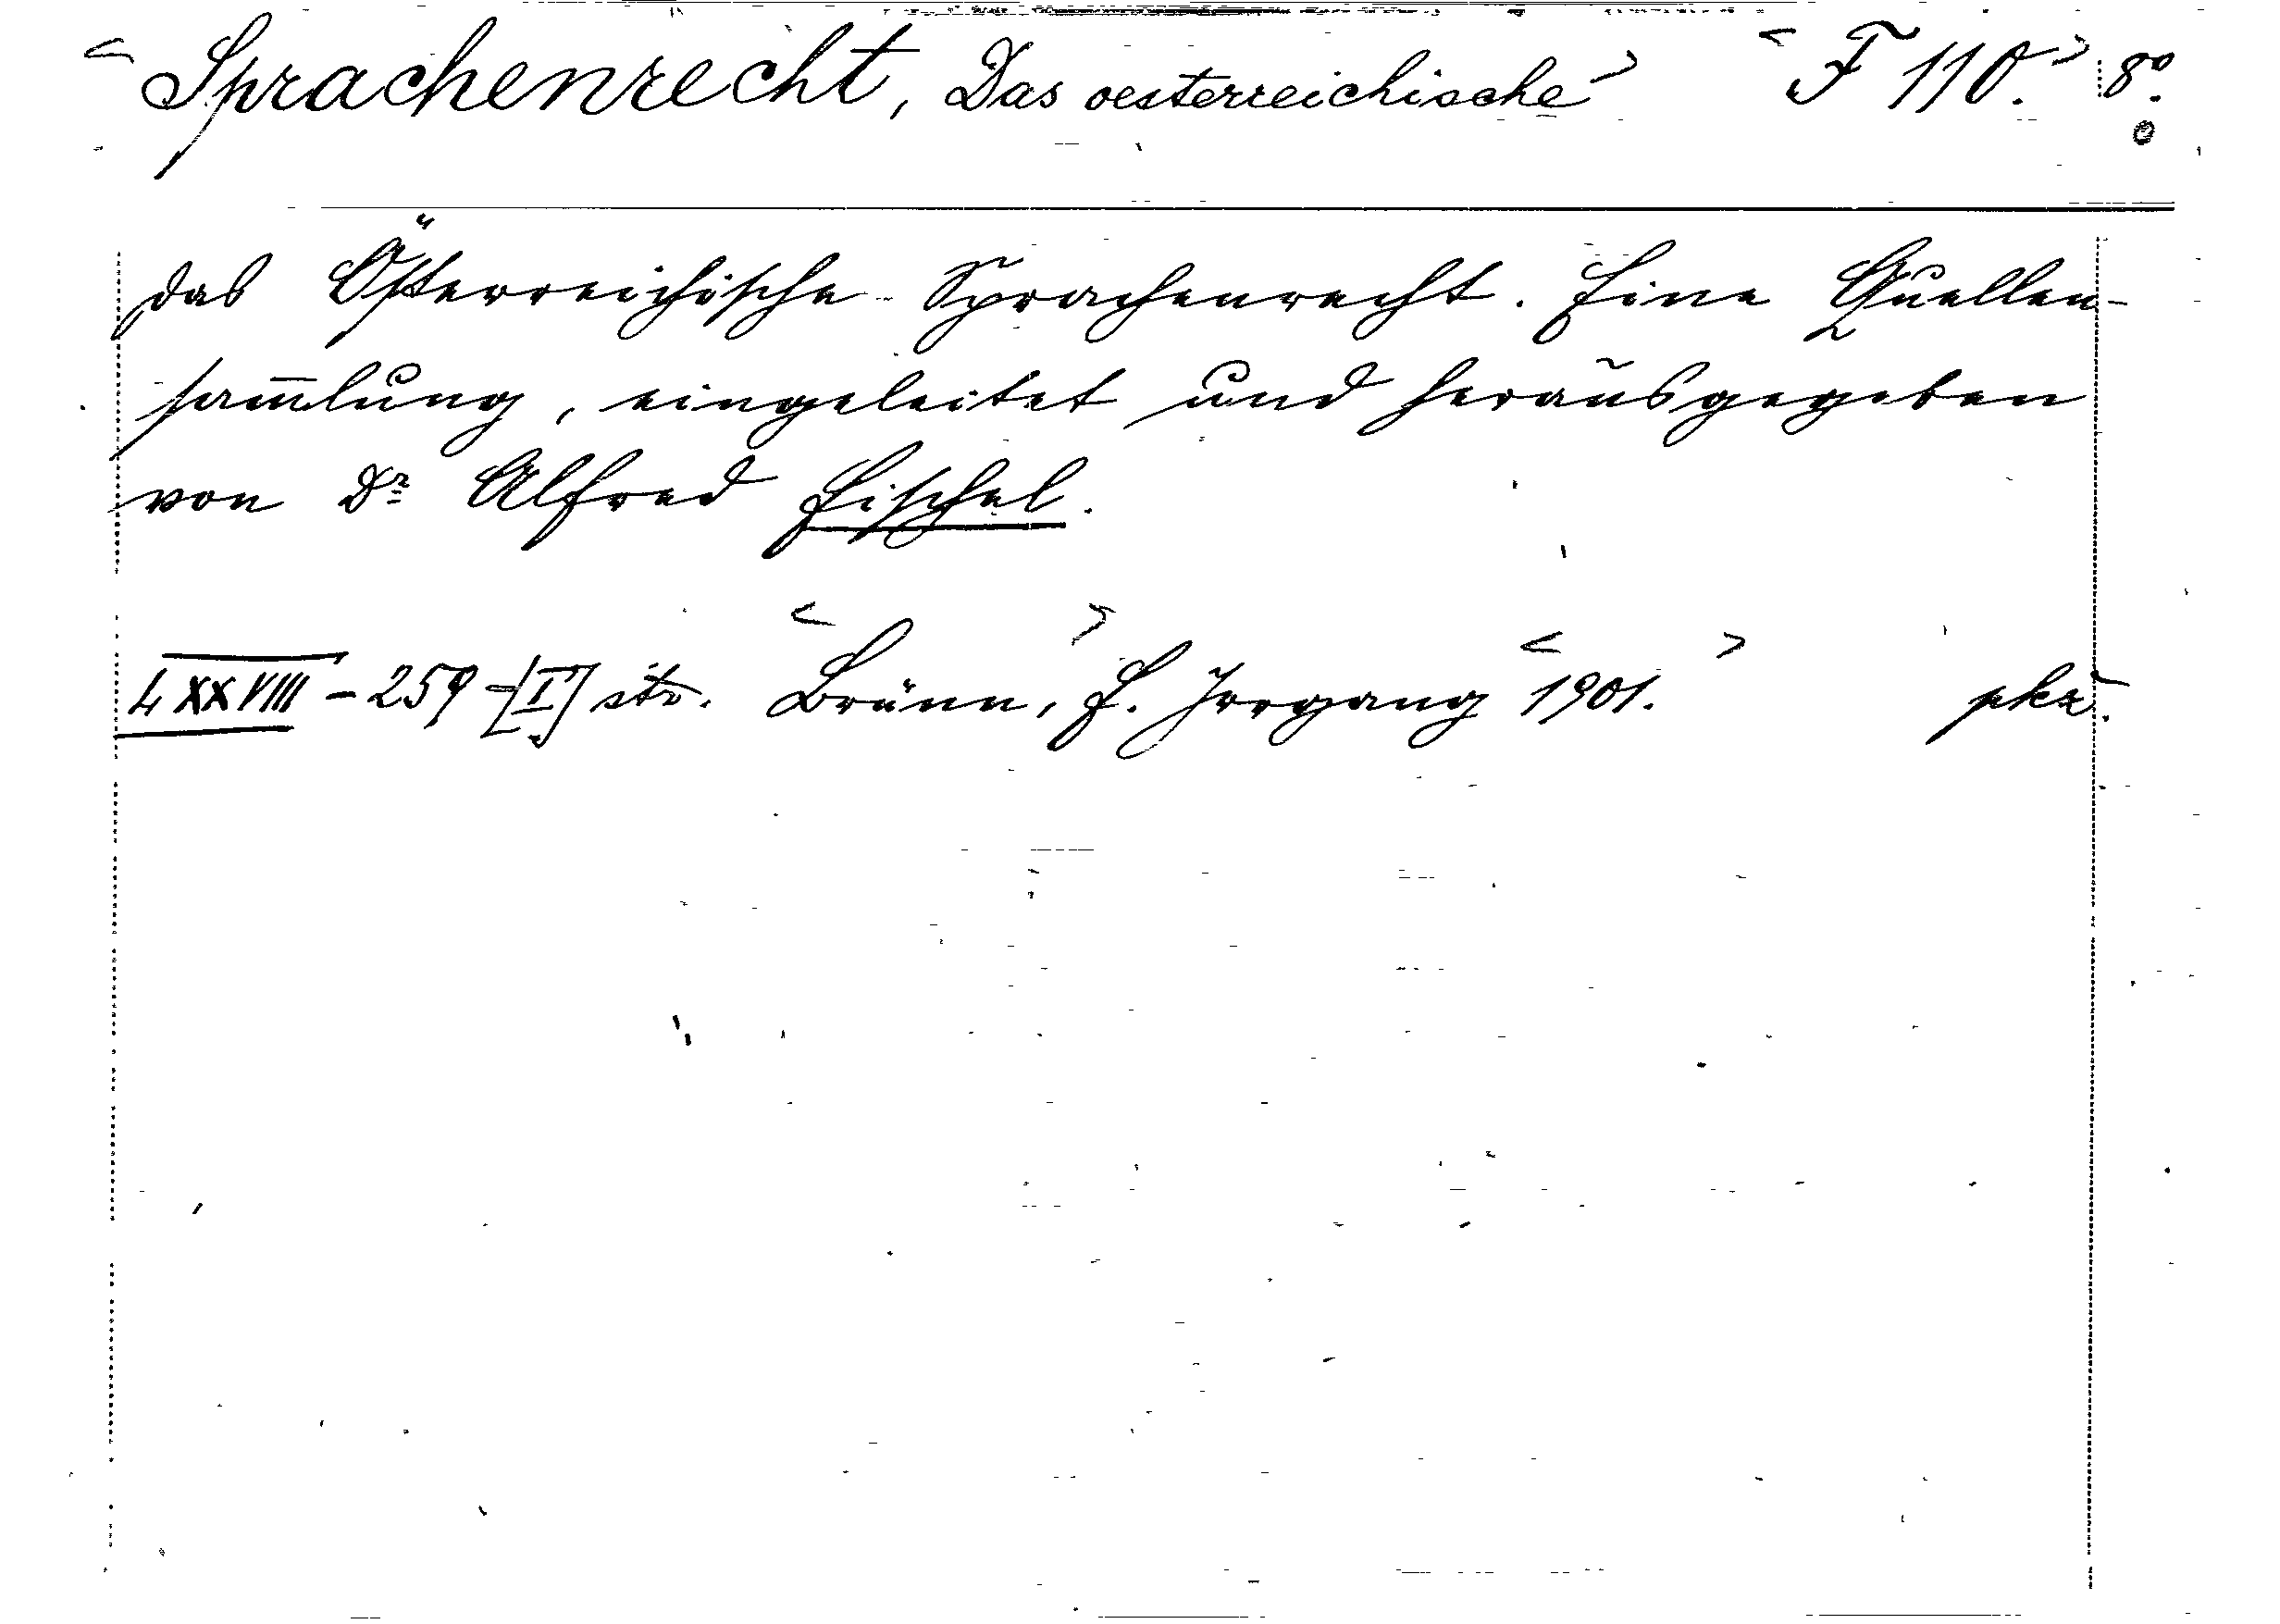 < Sprachenrecht, Das oesterreichische > < F 110. > 8º.
Das Österreichische Sprachenrecht. Eine Quellen-
sam̅lung, eingeleitet und herausgegeben
von Dr Alfred Fischel.
LXXVIII - 259 - [I] str. < Brünn, > F. Irrgang < 1901. > pkž.